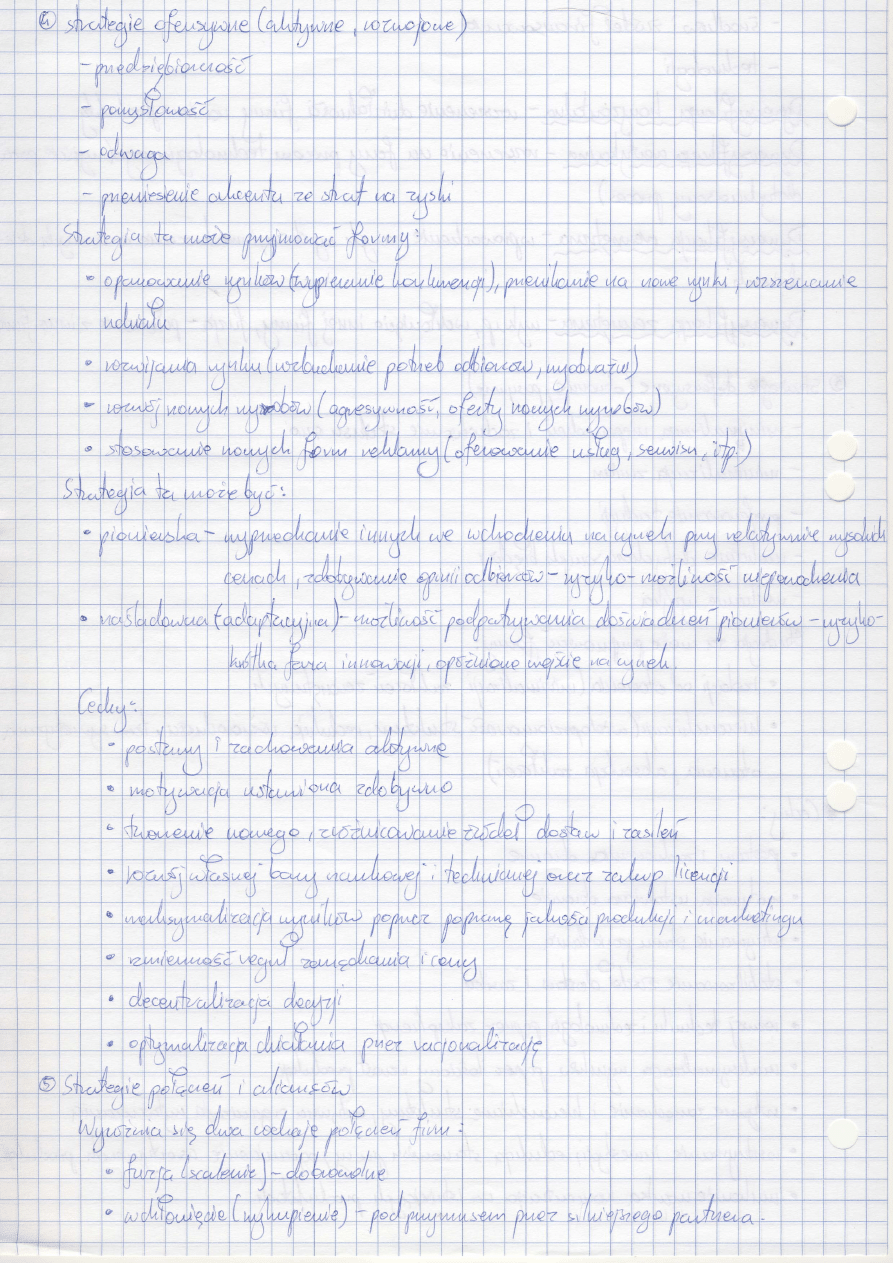 ④ strategie ofensywne (aktywne, rozwojowe)
- przedsiębiorczość
- pomysłowość
- odwaga
- przeniesienie akcentu ze strat na zyski
Strategia ta może przyjmować formy:
• opanowanie rynków (wypieranie konkurencji), przenikanie na nowe rynki, rozszerzanie
udziału
• rozwijania rynku (wzbudzenie potrzeb odbiorców, wyobraźni)
• rozwój nowych wyrobów (agresywność, oferty nowych wyrobów)
• stosowanie nowych form reklamy (oferowanie usług, serwisu, itp.)
Strategia ta może być:
• pionierska - wyprzedzanie innych we wchodzeniu na rynek przy relatywnie wysokich
cenach, zdobywanie opinii odbiorców - ryzyko - możliwość niepowodzenia
• naśladowcza (adaptacyjna) - możliwość podpatrywania doświadczeń pionierów - ryzyko -
krótka faza innowacji, opóźnione wejście na rynek.
Cechy:
• postawy i zachowania aktywne
• motywacja ustawiona zdobywczo
• tworzenie nowego, zróżnicowanie źródeł dostaw i zasileń
• rozwój własnej bazy naukowej i technicznej oraz zakup licencji
• maksymalizacja wyników poprzez poprawę jakości produkcji i marketingu
• zmienność reguł zarządzania i ceny
• decentralizacja decyzji
• optymalizacja działania przez racjonalizację
⑤ Strategie połączeń i aliansów
Wyróżnia się dwa rodzaje połączeń firm:
• fuzja (scalenie) - dobrowolne
• wchłonięcie (wykupienie) - pod przymusem przez silniejszego partnera.